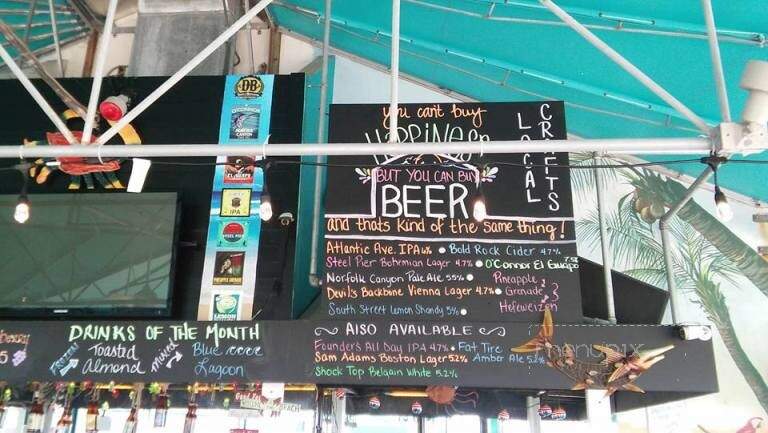 you can't buy
HAPPINESS
BUT YOU CAN BUY
BEER
and thats kind of the same thing!
LOCAL
CRAFTS
Atlantic Ave. IPA 6% • Bold Rock Cider 4.7%
Steel Pier Bohemian Lager 4.7% • O'Connor El Guapo 7.5%
Norfolk Canyon Pale Ale 5.5% •
Devil's Backbine Vienna Lager 4.7% •
South Street Lemon Shandy 5% •
Pineapple
Grenade
Hefeweizen
DRINKS OF THE MONTH
FROZEN
Toasted
Almond
MIXED
Blue
Lagoon
ALSO AVAILABLE
Founders All Day IPA 4.7% • Fat Tire
Sam Adams Boston Lager 5.2% Amber Ale 5.2%
Shock Top Belgain White 5.2%
DB
IPA
STEEL PIER
PINEAPPLE GRENADE
LEMON
menupix